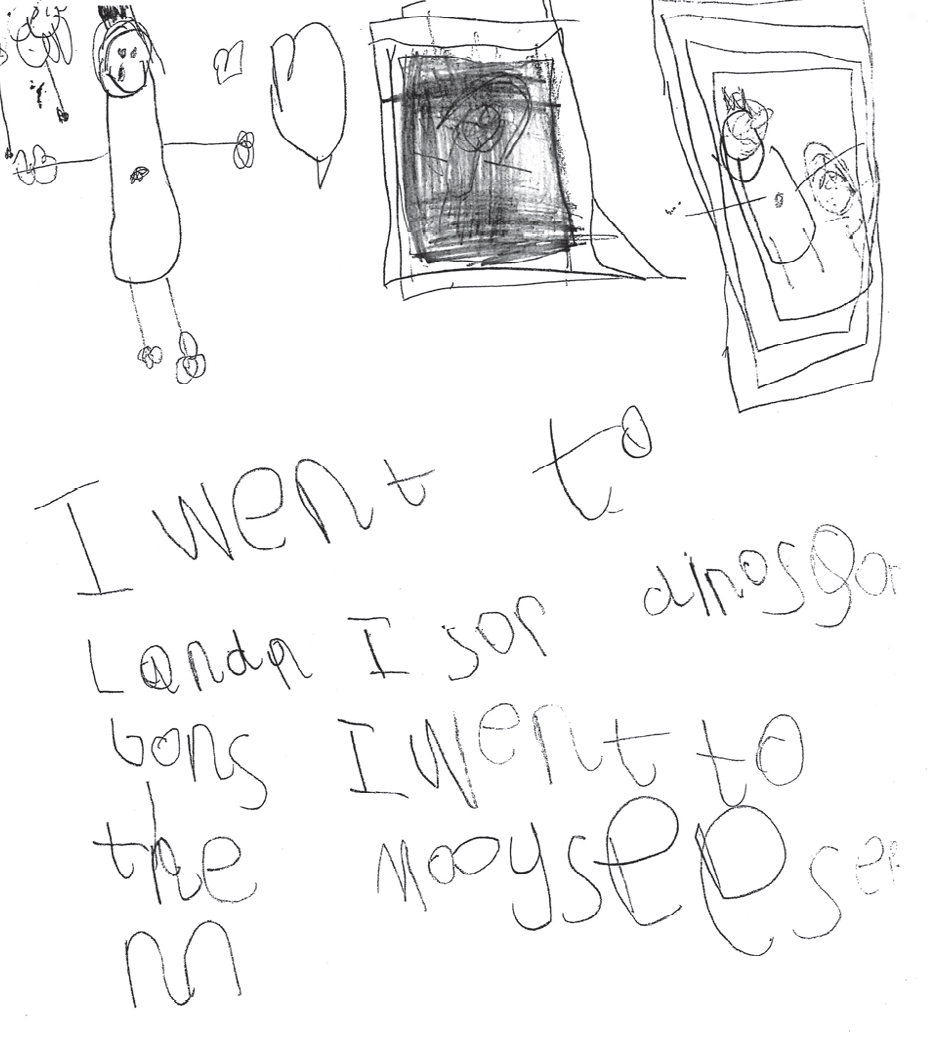 I went to
Landn I sor dinosgor
bons I went to
the mooyseeser
m